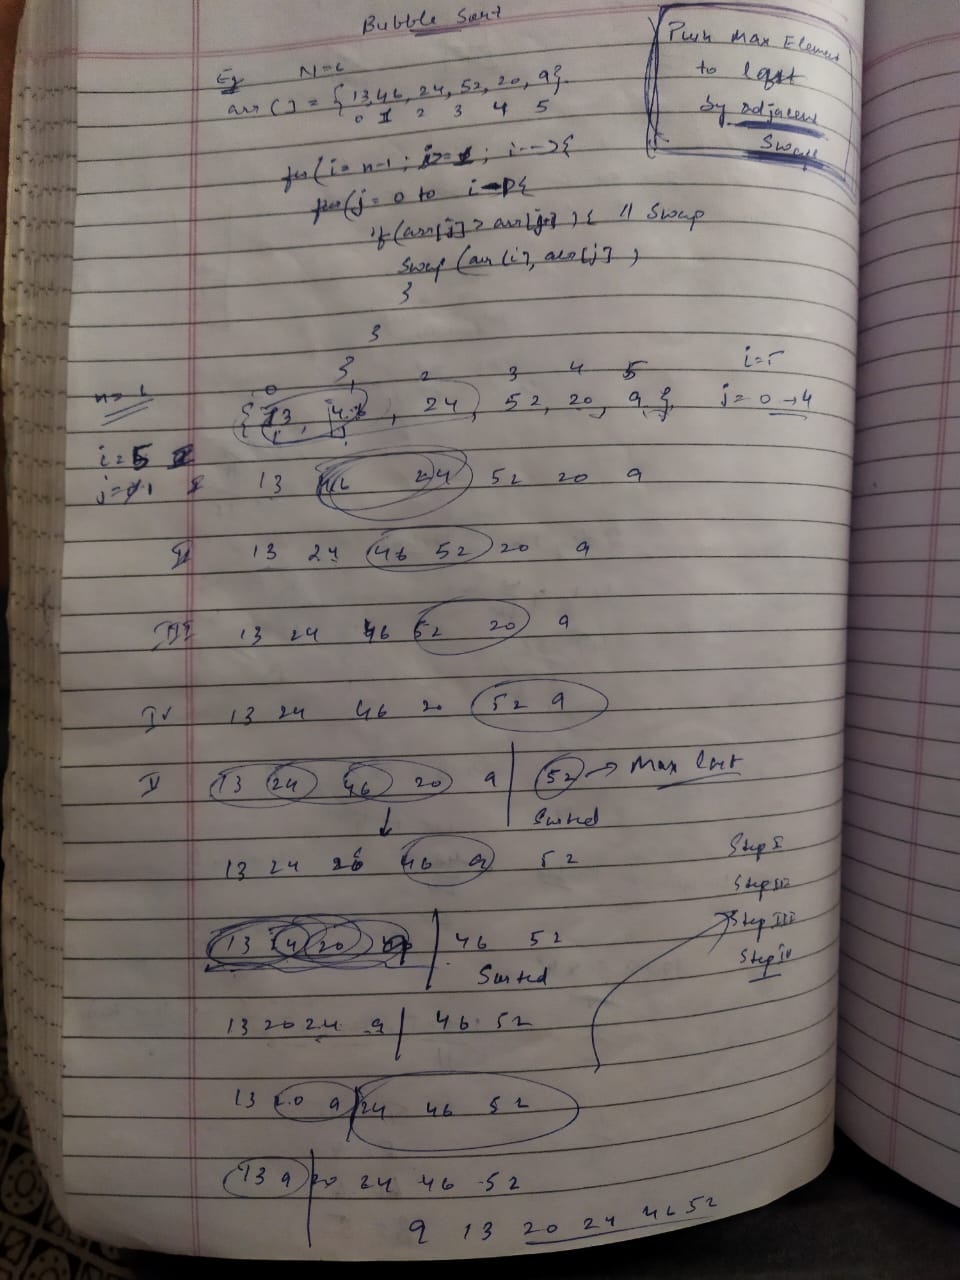 Bubble Sort
Push Max Element
to last
by adjacent
Swap
Eg N=6
arr [] = {13,46, 24, 52, 20, 9}
0 1 2 3 4 5
for(i = n-1 ; i>=1 ; i--){
for(j=0 to i-1){
if (arr[j] > arr[j+1]) { // Swap
Swap (arr[i], arr[j] )
}
}
}
0 2 3 4 5 i=5
n=6 { 13, 46, 24, 52, 20, 9 }, j=0→4
i=5
j=1 I 13 46 24 52 20 9
II 13 24 46 52 20 9
III 13 24 46 52 20 9
IV 13 24 46 20 52 9
V 13 24 46 20 9 | 52 → Max last
↓ Sorted
13 24 20 46 9 52 Step I
Step II
13 24 20 9 | 46 52 Step III
Sorted Step IV
13 20 24 9 | 46 52
13 20 9 | 24 46 52
13 9 | 20 24 46 52
9 13 20 24 46 52